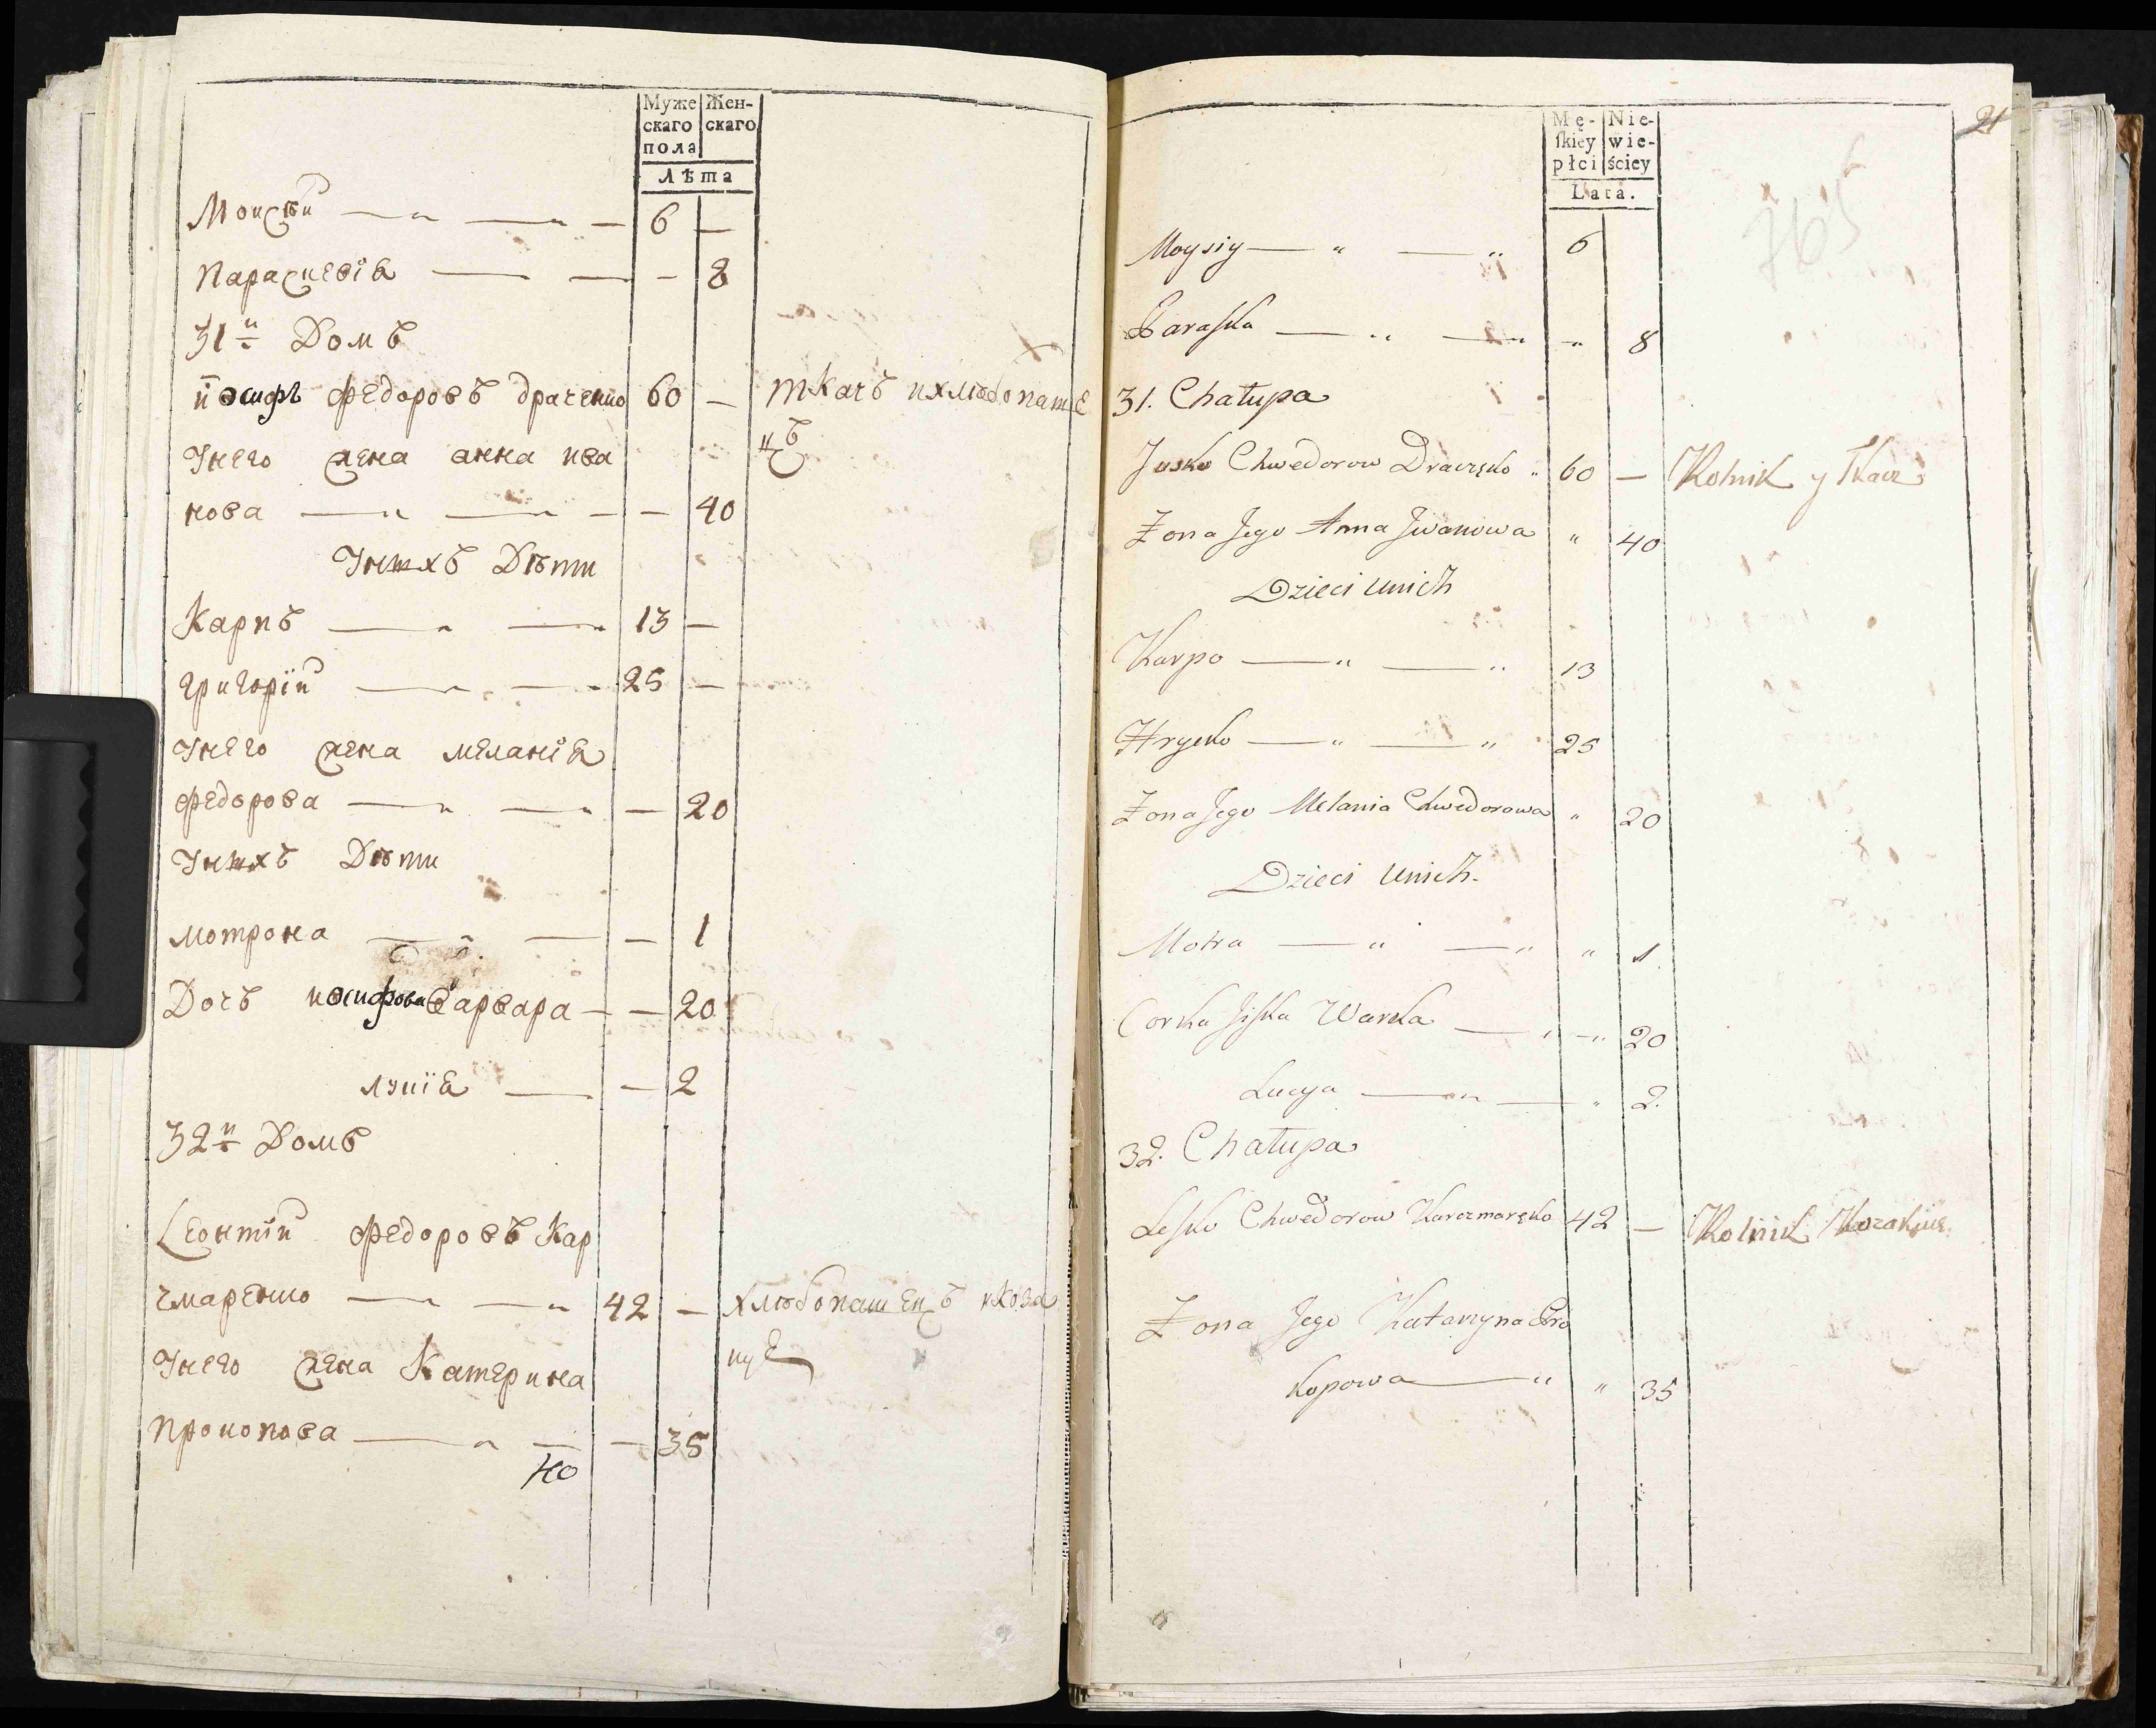 Муже Жен-
скаго скаго
пола
Лѣта
Моисѣй 6 —
Параскевiя — 8
31й Домъ
иосифъ Федоровъ драченко 60 — ткачъ ихлѣбопаше
Унего жена анна ива цъ
нова — 40
Унихъ Дѣти
Карпъ 13 —
григорiй 25 —
Унего жена меланiя
Федорова — 20
Унихъ Дѣти
мотрона — 1
Дочь иосифова варвара — 20
луцiя — 2
32й Домъ
Леонтiй Федоровъ Кар
чмаренко 42 — хлѣбопашецъ иКоза
Унего жена Катерина куе
прокопова — 35
40
21
Mę- Nie-
ſkiey wie-
płci ściey
Lata.
765
Moysiy " " 6
Paraſka " " " 8
31. Chałupa
Jusko Chwedorow Draczęko " 60 — Rolnik y Tkacz
Żona Jego Anna Jwanowa " 40
Dzieci unich
Karpo " " 13
Hryćko " " 25
Żona Jego Melania Chwedorowa " 20
Dzieci unich.
Motra " " " 1.
Corka Jiſka Warka " 20
Lucya " " 2.
32. Chałupa
Leſko Chwedorow Karczmaręko 42 — Rolnik Kozakuie.
Żona Jego Katarzyna Pro
kopowa " " 35